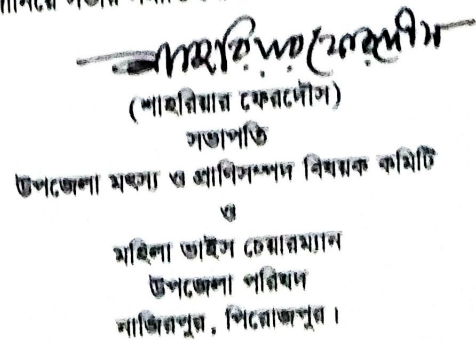 শাহরিয়ার ফেরদৌস
(শাহরিয়ার ফেরদৌস)
সভাপতি
উপজেলা মৎস্য ও প্রাণিসম্পদ বিষয়ক কমিটি
ও
মহিলা ভাইস চেয়ারম্যান
উপজেলা পরিষদ
নাজিরপুর, পিরোজপুর।